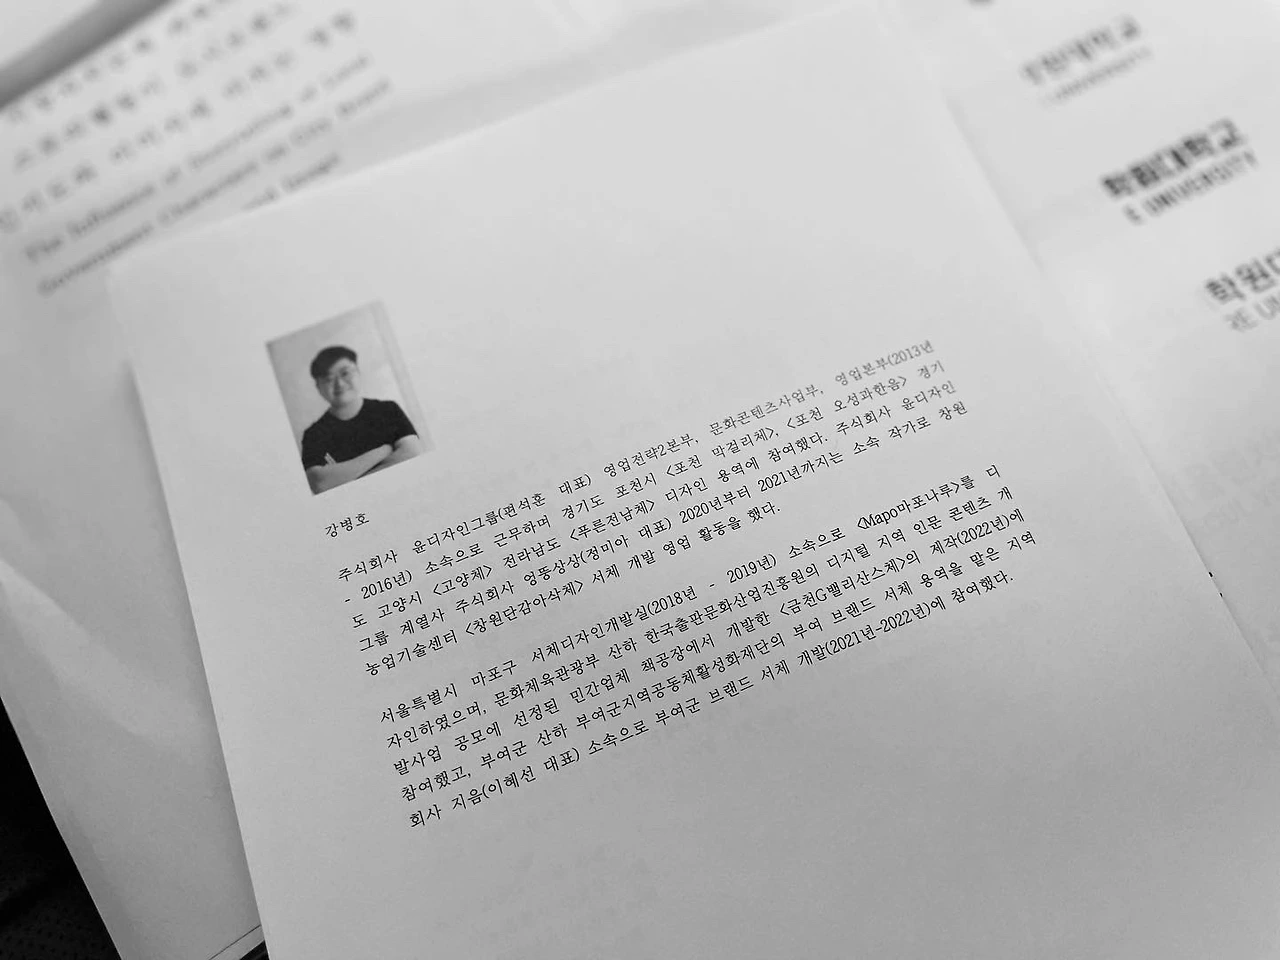 The Influence of
Government Characters on City Brand
강병호
주식회사 윤디자인그룹(편석훈 대표) 영업전략2본부, 문화콘텐츠사업부, 영업본부(2013년
- 2016년) 소속으로 근무하며 경기도 포천시 <포천 막걸리체>, <포천 오성과한음> 경기
도 고양시 <고양체> 전라남도 <푸른전남체> 디자인 용역에 참여했다. 주식회사 윤디자인
그룹 계열사 주식회사 엉뚱상상(정미아 대표) 2020년부터 2021년까지는 소속 작가로 창원
농업기술센터 <창원단감아삭체> 서체 개발 영업 활동을 했다.
서울특별시 마포구 서체디자인개발실(2018년 - 2019년) 소속으로 <Mapo마포나루>를 디
자인하였으며, 문화체육관광부 산하 한국출판문화산업진흥원의 디지털 지역 인문 콘텐츠 개
발사업 공모에 선정된 민간업체 책공장에서 개발한 <금천G밸리산스체>의 제작(2022년)에
참여했고, 부여군 산하 부여군지역공동체활성화재단의 부여 브랜드 서체 용역을 맡은 지역
회사 지음(이혜선 대표) 소속으로 부여군 브랜드 서체 개발(2021년-2022년)에 참여했다.
학원대학교
E UNIVERSITY
학원대